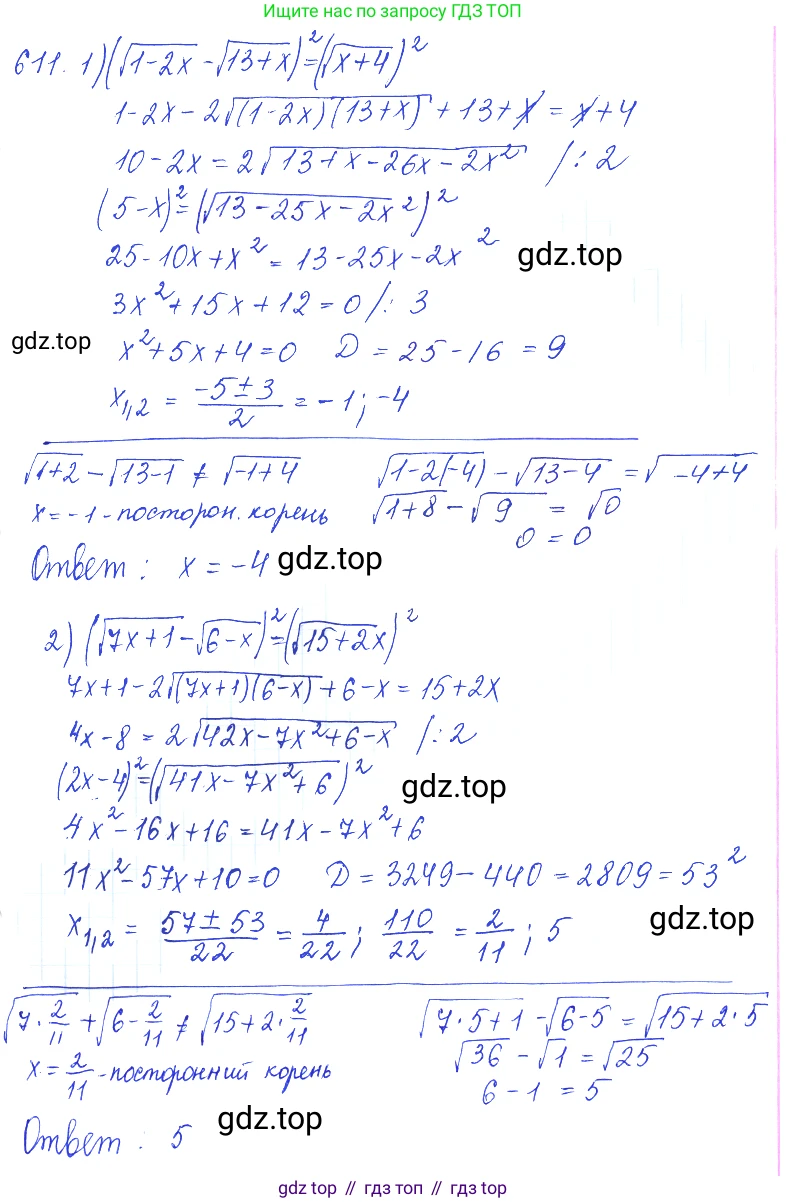 Ищите нас по запросу ГДЗ ТОП
611. 1) (√1-2x - √13+x)² = (√x+4)²
1-2x-2√(1-2x)(13+x) + 13+x = x+4
10-2x = 2√13+x-26x-2x² /:2
(5-x)² = (√13-25x-2x²)²
25-10x+x² = 13-25x-2x²
gdz.top
3x²+15x+12=0 /: 3
gdz.top
x²+5x+4=0 D = 25-16 = 9
x1,2 = (-5±3)/2 = -1; -4
√1+2 - √13-1 ≠ √-1+4 √1-2(-4) - √13-4 = √-4+4
x=-1 - посторон. корень √1+8 - √9 = √0
0 = 0
Ответ: x = -4
gdz.top
2) (√7x+1 - √6-x)² = (√15+2x)²
7x+1-2√(7x+1)(6-x) + 6-x = 15+2x
4x-8 = 2√42x-7x²+6-x /:2
(2x-4)² = (√41x-7x²+6)²
gdz.top
4x²-16x+16 = 41x-7x²+6
11x²-57x+10=0 D = 3249-440 = 2809 = 53²
x1,2 = (57±53)/22 = 4/22; 110/22 = 2/11; 5
gdz.top
√7·2/11 + √6-2/11 ≠ √15+2·2/11 √7·5+1 - √6-5 = √15+2·5
√36 - √1 = √25
x = 2/11 - посторонний корень 6-1 = 5
Ответ: 5
gdz.top
gdz.top // гдз топ // gdz.top